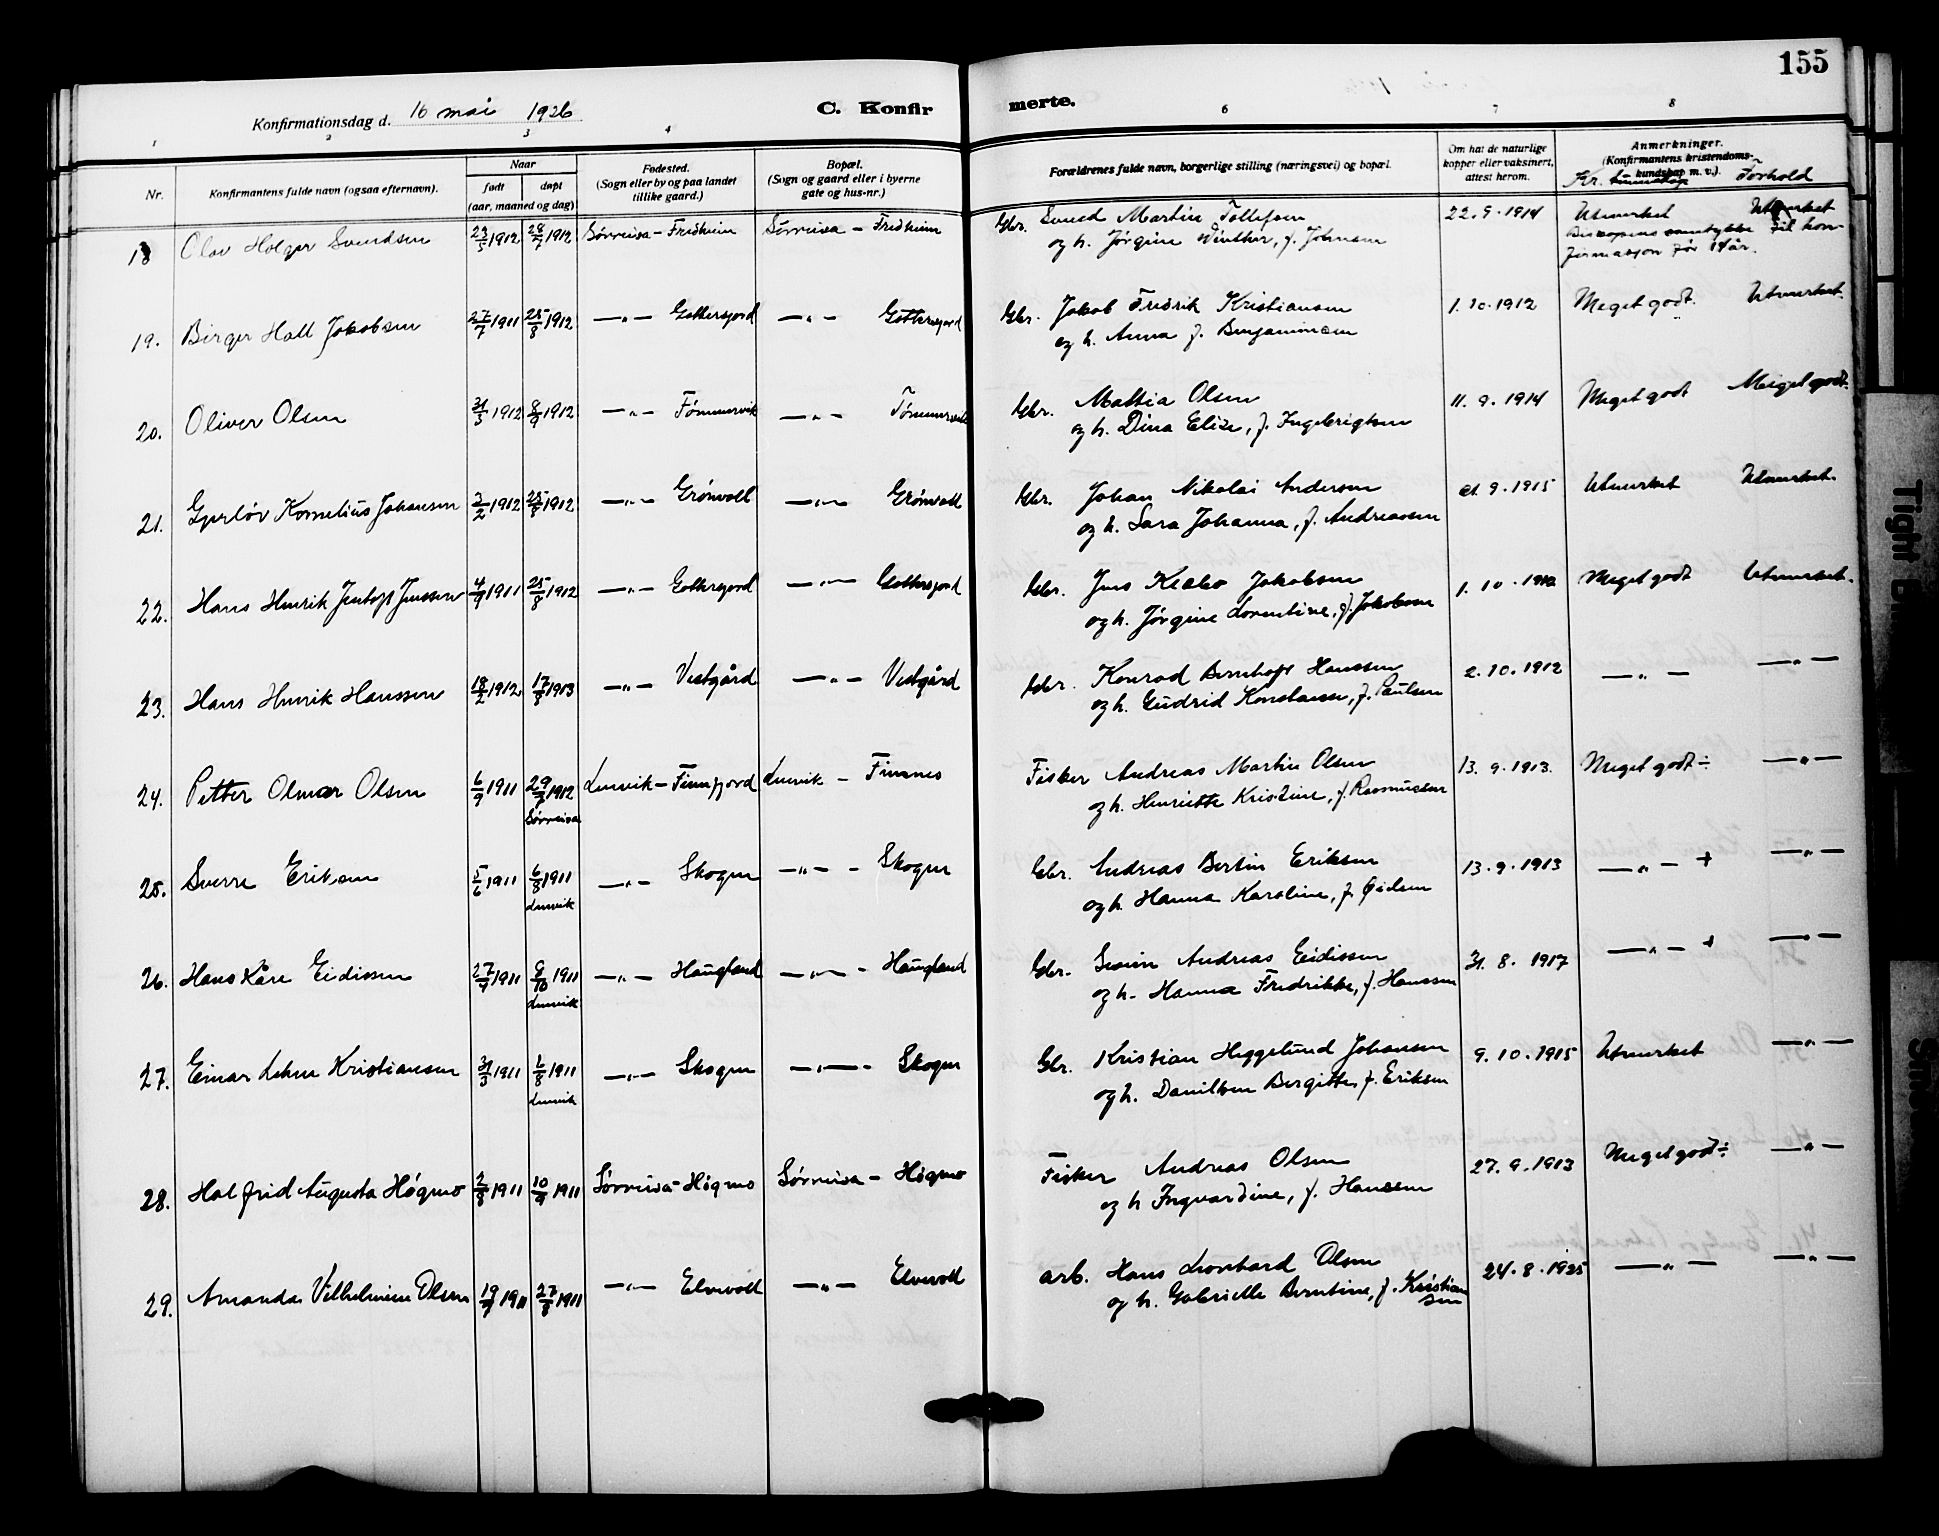 155
Konfirmationsdag d. 16 mai 1926
C. Konfirmerte.
1 2 3 4 6 7 8
Nr.
Konfirmantens fulde navn (ogsaa efternavn).
Naar
født døpt
(aar, maaned og dag)
Fødested.
(Sogn eller by og paa landet
tillike gaard.)
Bopæl.
(Sogn og gaard eller i byerne
gate og hus-nr.)
Forældrenes fulde navn, borgerlige stilling (næringsvei) og bopæl.
Om hat de naturlige
kopper eller vaksinert,
attest herom.
Anmerkninger.
(Konfirmantens kristendoms-
kundskap m. v.).
Kr. kunnskap Forhold
18 Olav Holger Svendsen 23/5 1912 28/7 1912 Sørreisa - Fredheim Sørreisa - Fredheim Gbr. Svend Martin Tollefsen 22.9.1914 Utmerket Utmerket
og h. Jørgine Winther, f. Johnsen Biskopens samtykke til kon-
firmasjon før 14 år.
19. Birger Hall Jakobsen 27/7 1911 25/8 1912 —"— Gottersjord —"— Gottersjord Gbr. Jakob Fredrik Kristiansen 1.10.1912 Meget godt. Utmerket.
og h. Anna f. Benjaminsen
20. Oliver Olsen 31/3 1912 8/9 1912 —"— Tømmervik —"— Tømmervik Gbr. Mattia Olsen 11.9.1914 Meget godt Meget godt.
og h. Dina Elise, f. Ingebrigtsen
21. Gjerløv Kornelius Johansen 3/2 1912 25/8 1912 —"— Grønvoll —"— Grønvoll Gbr. Johan Nikolai Andersen 21.9.1915 Utmerket Utmerket.
og h. Sara Johanna, f. Andreassen
22. Hans Henrik Jentoft Jenssen 4/9 1911 25/8 1912 —"— Gottersjord —"— Gottersjord Gbr. Jens Kielbo Jakobsen 1.10.1912 Meget godt Utmerket.
og h. Jørgine Lorentine, f. Jakobsen
23. Hans Henrik Hanssen 18/2 1912 17/8 1913 —"— Vestgård —"— Vestgård Gbr. Konrad Bernhoft Hanssen 2.10.1912 —"— —"—
og h. Gudrid Konstanse, f. Paulsen
24. Petter Olmar Olsen 6/9 1911 29/7 1912 Lenvik - Finnfjord Lenvik - Finnes Fisker Andreas Martin Olsen 13.9.1913. Meget godt ÷ —"—
Sørreisa og h. Henriette Kristine, f. Rasmussen
25. Sverre Eriksen 5/6 1911 6/8 1911 —"— Skogen —"— - Skogen Gbr. Andreas Bertin Eriksen 13.9.1913 —"— + —"—
Lenvik og h. Hanna Karoline, f.
26. Hans Kåre Eidissen 27/7 1911 8/10 1911 —"— Haugland —"— - Haugland Gbr. Simin Andreas Eidissen 31.8.1917 —"— + —"—
Lenvik og h. Hanna Fredrikke, f. Hanssen
27. Einar Lehn Kristiansen 31/3 1911 6/8 1911 —"— Skogen —"— - Skogen Gbr. Kristian Heggelund Johansen 9.10.1915 Utmerket —"—
Lenvik og h. Danilsen Bergitte, f. Eriksen
28. Halfrid Augusta Høgmo 2/8 1911 10/9 1911 Sørreisa - Høgmo Sørreisa - Høgmo Fisker Andreas Olsen 27.9.1913 Meget godt ÷ —"—
og h Ingvardine, f. Hansen
29. Amanda Vilhelmine Olsen 19/7 1911 27/8 1911 —"— Elvevoll —"— Elvevoll arb. Hans Leonhard Olsen 24.8.1925 —"— —"—
og h. Gabrielle Berntine, f. Kristian
sen